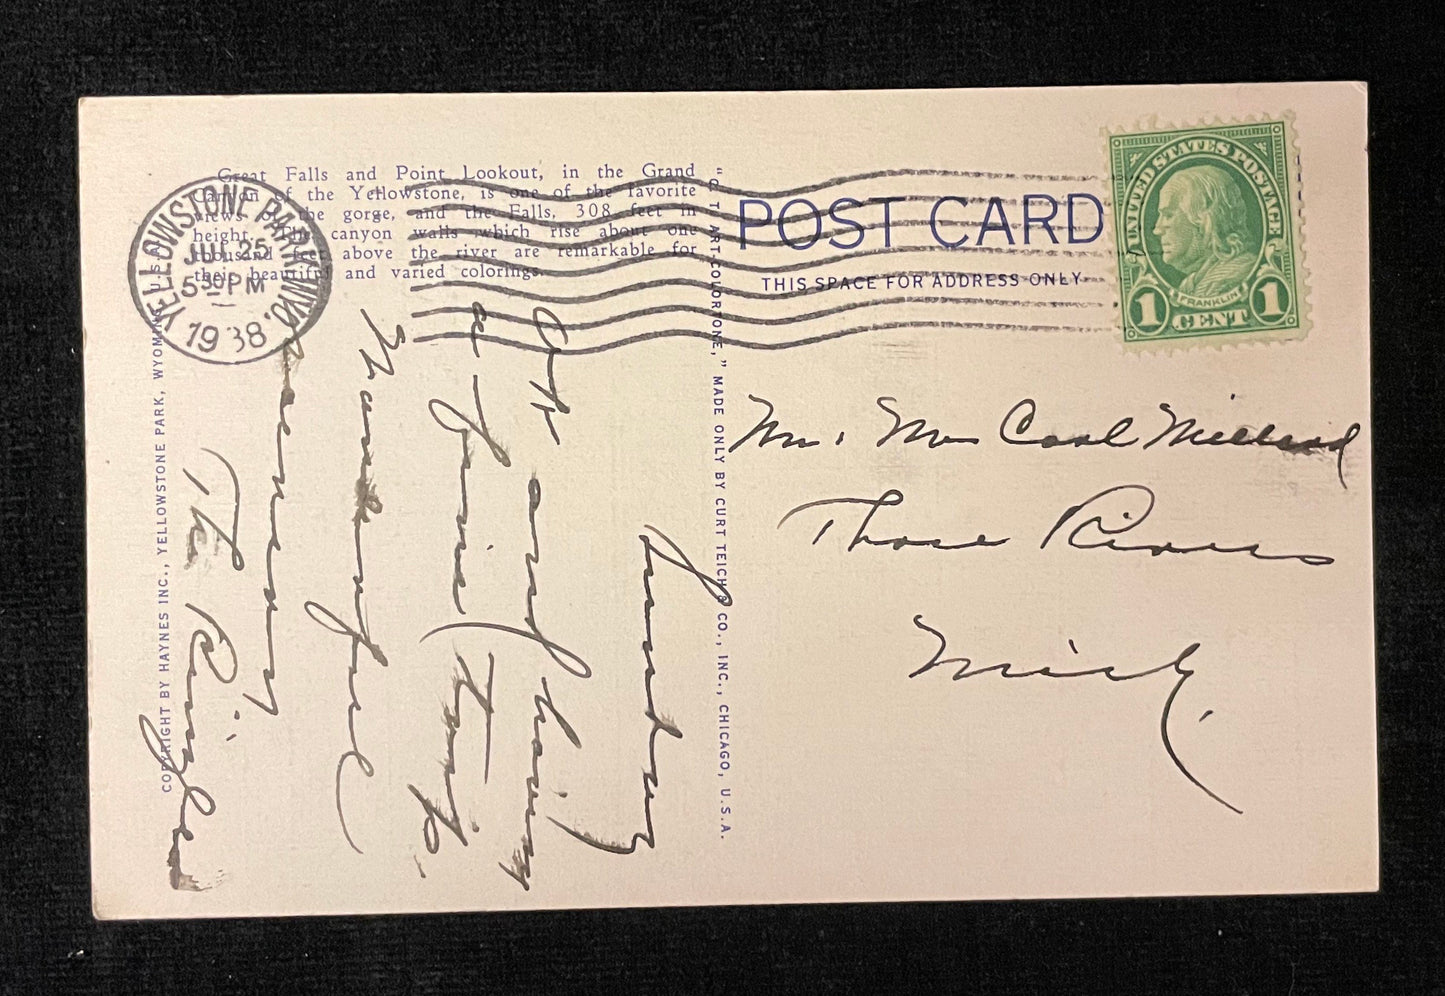 Great Falls and Point Lookout, in the Grand
Canyon of the Yellowstone, is one of the favorite
views of the gorge, and the Falls, 308 feet in
height. The canyon walls which rise about one
thousand feet above the river are remarkable for
their beautiful and varied colorings.
YELLOWSTONE PARK, WYO.
JUL 25
5 30 PM
1938
COPYRIGHT BY HAYNES INC., YELLOWSTONE PARK, WYOMING
"C. T. ART-COLORTONE," MADE ONLY BY CURT TEICH & CO., INC., CHICAGO, U.S.A.
POST CARD
THIS SPACE FOR ADDRESS ONLY
UNITED STATES POSTAGE
FRANKLIN
1 CENT 1
Sunday
O.K. and having
a fine trip.
Wonderful
scenery
The
Mr. Mrs Carl
Three Rivers
Mich.